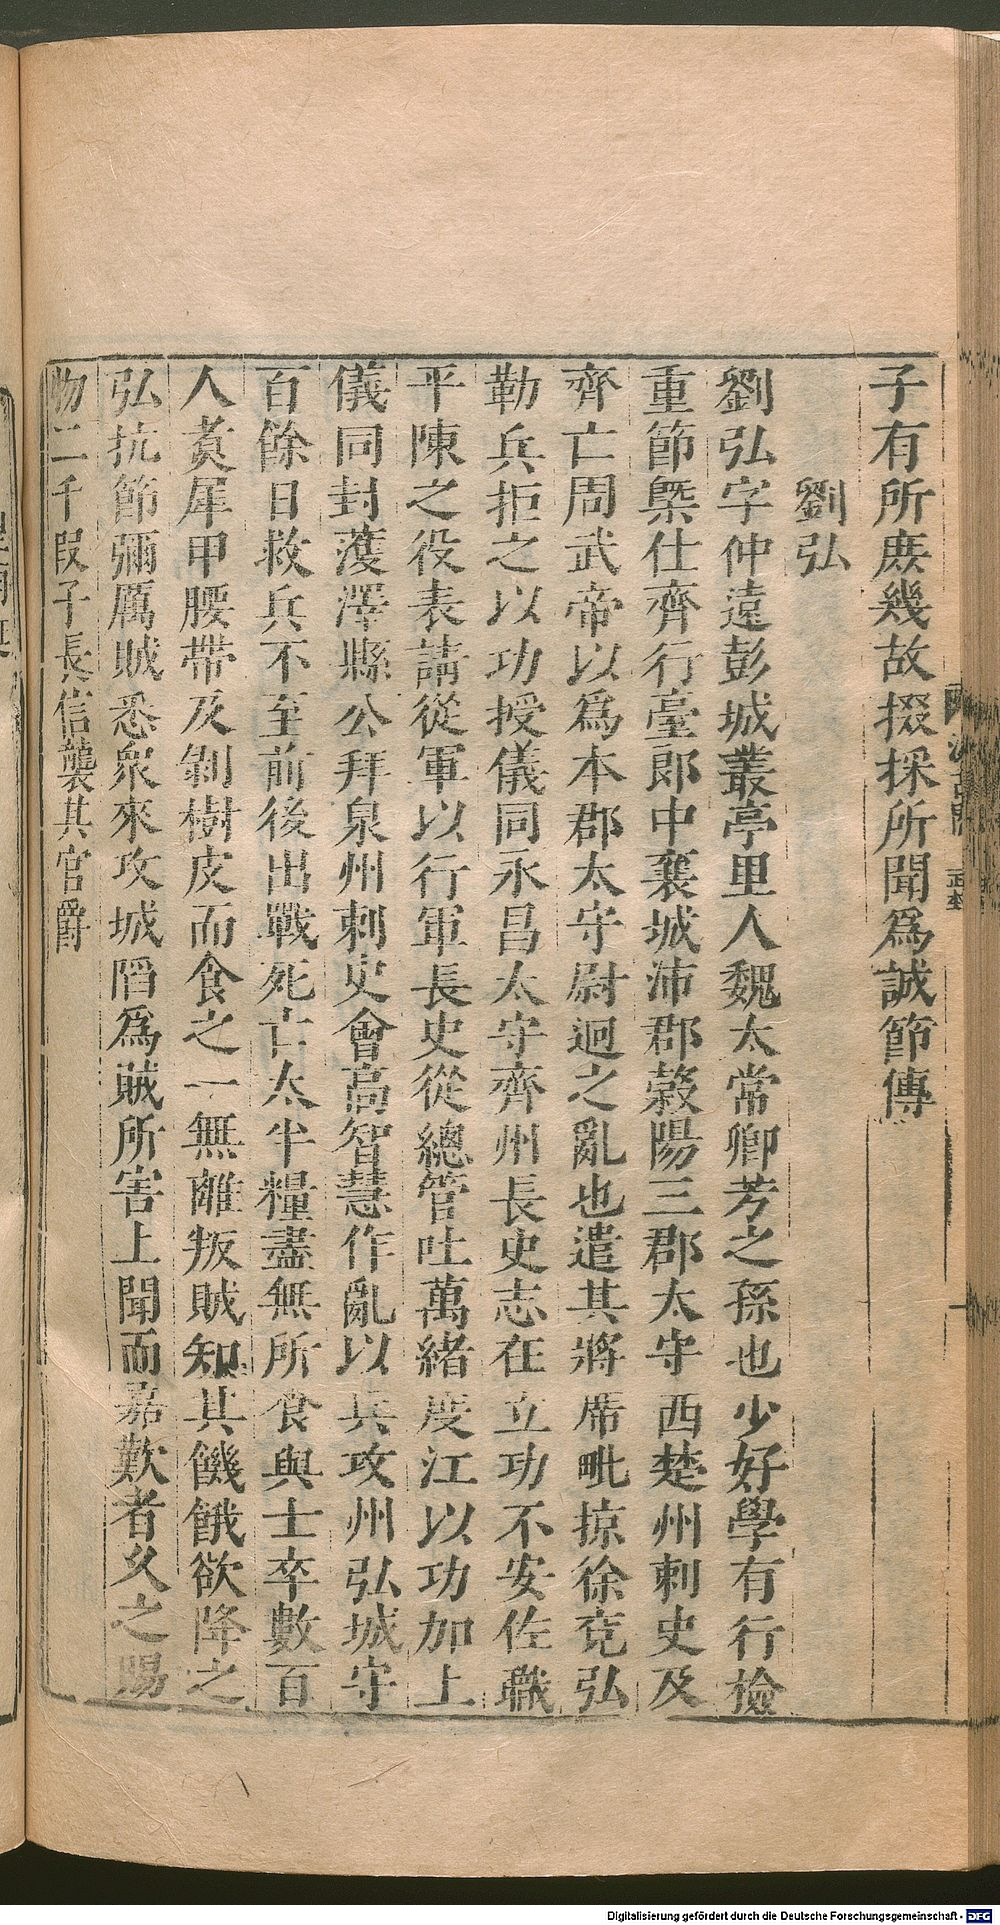 子有所庶幾故掇採所聞爲誠節傳
劉弘
劉弘字仲遠彭城叢亭里人魏太常卿芳之孫也少好學有行檢
重節槩仕齊行臺郎中襄城沛郡穀陽三郡太守西楚州刺史及
齊亡周武帝以爲本郡太守尉迥之亂也遣其將席毗掠徐兗弘
勒兵拒之以功授儀同永昌太守齊州長史志在立功不安佐職
平陳之役表請從軍以行軍長史從總管吐萬緒度江以功加上
儀同封濩澤縣公拜泉州刺史會高智慧作亂以兵攻州弘城守
百餘日救兵不至前後出戰死亡太半糧盡無所食與士卒數百
人煑犀甲腰帶及剝樹皮而食之一無離叛賊知其饑餓欲降之
弘抗節彌厲賊悉衆來攻城陷爲賊所害上聞而嘉歎者久之賜
物二千段子長信襲其官爵
Digitalisierung gefördert durch die Deutsche Forschungsgemeinschaft - DFG